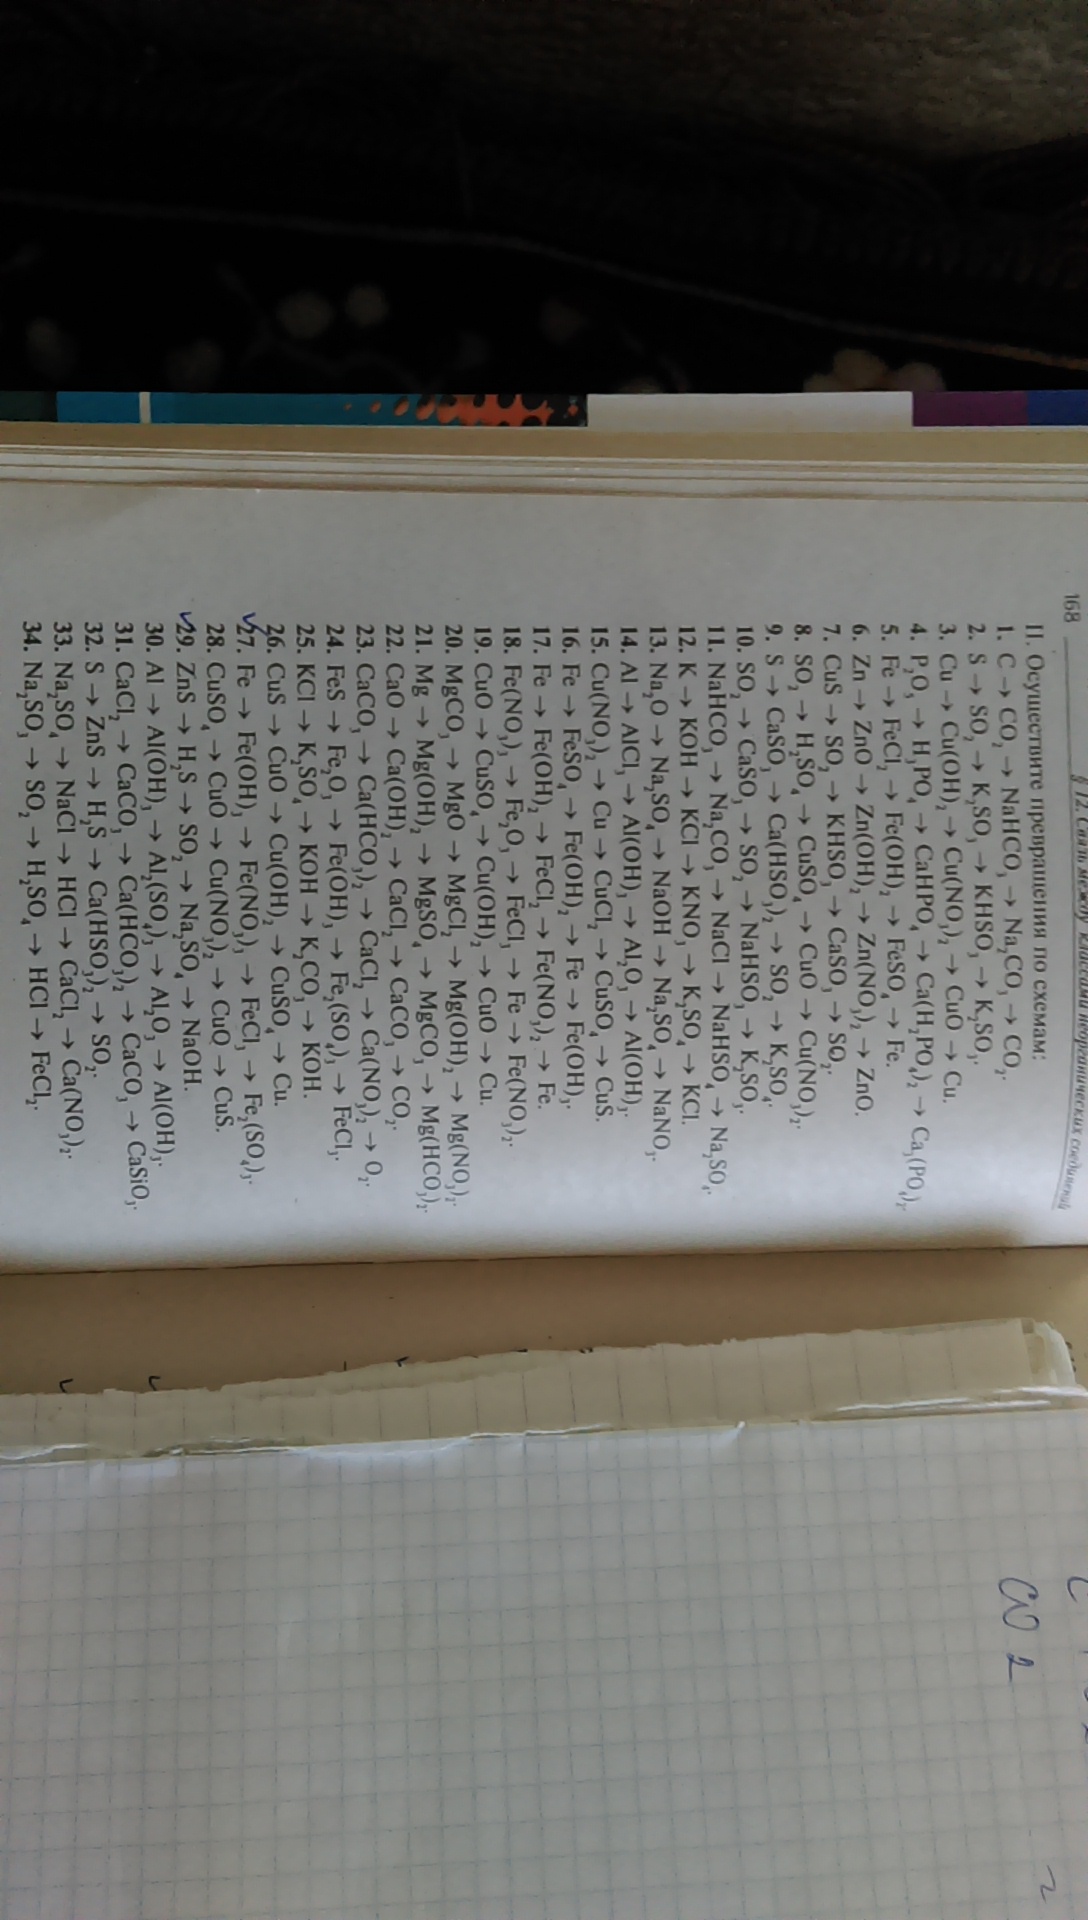 168
§ 12. Связь между классами неорганических соединений
II. Осуществите превращения по схемам:
1. C → CO₂ → NaHCO₃ → Na₂CO₃ → CO₂.
2. S → SO₂ → K₂SO₃ → KHSO₃ → K₂SO₃.
3. Cu → Cu(OH)₂ → Cu(NO₃)₂ → CuO → Cu.
4. P₂O₅ → H₃PO₄ → CaHPO₄ → Ca(H₂PO₄)₂ → Ca₃(PO₄)₂.
5. Fe → FeCl₂ → Fe(OH)₂ → FeSO₄ → Fe.
6. Zn → ZnO → Zn(OH)₂ → Zn(NO₃)₂ → ZnO.
7. CuS → SO₂ → KHSO₃ → CaSO₃ → SO₂.
8. SO₃ → H₂SO₄ → CuSO₄ → CuO → Cu(NO₃)₂.
9. S → CaSO₃ → Ca(HSO₃)₂ → SO₂ → K₂SO₄.
10. SO₂ → CaSO₃ → SO₂ → NaHSO₃ → K₂SO₃.
11. NaHCO₃ → Na₂CO₃ → NaCl → NaHSO₄ → Na₂SO₄.
12. K → KOH → KCl → KNO₃ → K₂SO₄ → KCl.
13. Na₂O → Na₂SO₄ → NaOH → Na₂SO₄ → NaNO₃.
14. Al → AlCl₃ → Al(OH)₃ → Al₂O₃ → Al(OH)₃.
15. Cu(NO₃)₂ → Cu → CuCl₂ → CuSO₄ → CuS.
16. Fe → FeSO₄ → Fe(OH)₂ → Fe → Fe(OH)₃.
17. Fe → Fe(OH)₂ → FeCl₂ → Fe(NO₃)₂ → Fe.
18. Fe(NO₃)₃ → Fe₂O₃ → FeCl₃ → Fe → Fe(NO₃)₂.
19. CuO → CuSO₄ → Cu(OH)₂ → CuO → Cu.
20. MgCO₃ → MgO → MgCl₂ → Mg(OH)₂ → Mg(NO₃)₂.
21. Mg → Mg(OH)₂ → MgSO₄ → MgCO₃ → Mg(HCO₃)₂.
22. CaO → Ca(OH)₂ → CaCl₂ → CaCO₃ → CO₂.
23. CaCO₃ → Ca(HCO₃)₂ → CaCl₂ → Ca(NO₃)₂ → O₂.
24. FeS → Fe₂O₃ → Fe(OH)₃ → Fe₂(SO₄)₃ → FeCl₃.
25. KCl → K₂SO₄ → KOH → K₂CO₃ → KOH.
26. CuS → CuO → Cu(OH)₂ → CuSO₄ → Cu.
✓27. Fe → Fe(OH)₃ → Fe(NO₃)₃ → FeCl₃ → Fe₂(SO₄)₃.
28. CuSO₄ → CuO → Cu(NO₃)₂ → CuO → CuS.
✓29. ZnS → H₂S → SO₂ → Na₂SO₄ → NaOH.
30. Al → Al(OH)₃ → Al₂(SO₄)₃ → Al₂O₃ → Al(OH)₃.
31. CaCl₂ → CaCO₃ → Ca(HCO₃)₂ → CaCO₃ → CaSiO₃.
32. S → ZnS → H₂S → Ca(HSO₃)₂ → SO₂.
33. Na₂SO₄ → NaCl → HCl → CaCl₂ → Ca(NO₃)₂.
34. Na₂SO₃ → SO₂ → H₂SO₄ → HCl → FeCl₂.
CO 2